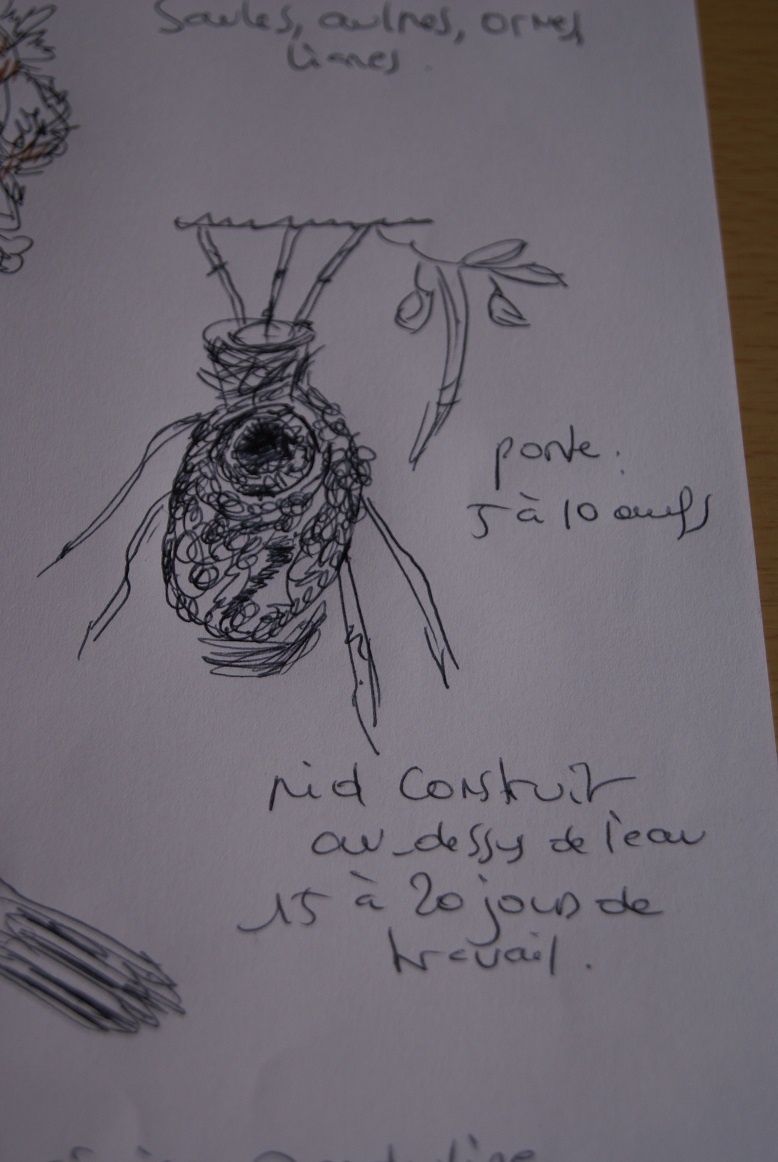 Saules, aulnes, ormes,
lianes.
ponte :
5 à 10 œufs
nid construit
au-dessus de l'eau
15 à 20 jours de
travail.